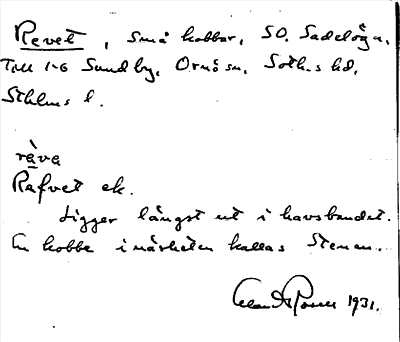 Revet, små kobbar, SO. Sadelöga,
Till 1-6 Sundby, Ornö sn, Soth.s hd,
Sthlms l.
räva
Räfvet ek.
Ligger längst ut i havsbandet.
En kobbe i närheten kallas Stenen.
1931.